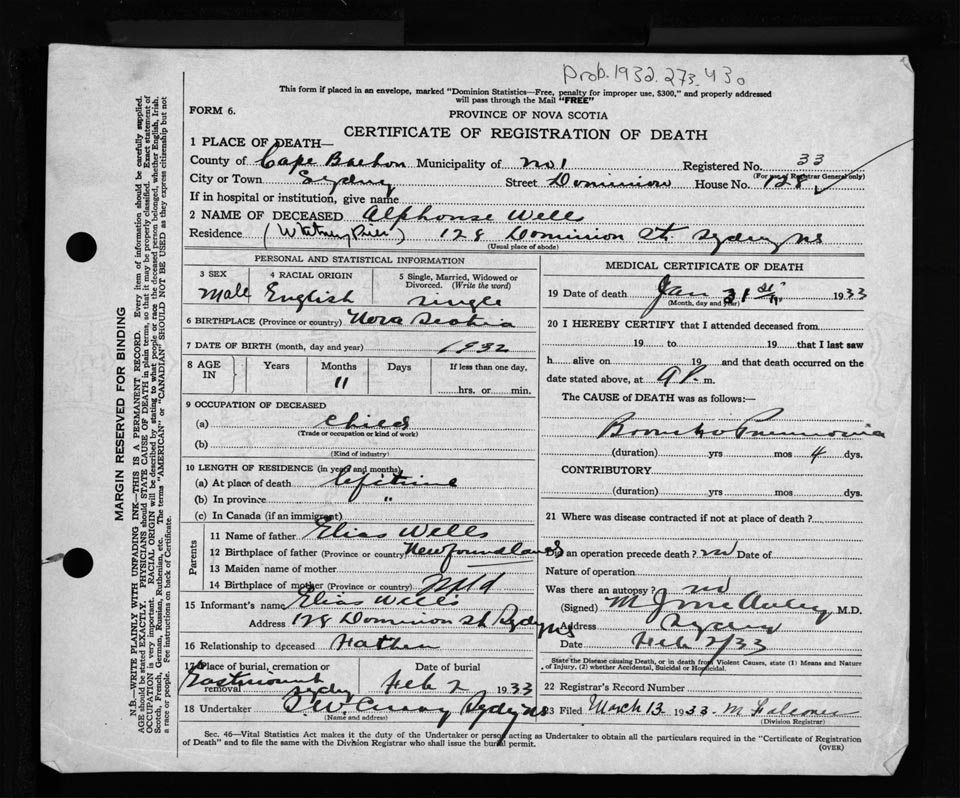 Prob. 1932.273.430
This form if placed in an envelope, marked "Dominion Statistics—Free, penalty for improper use, $300," and properly addressed
will pass through the Mail "FREE"
FORM 6.
PROVINCE OF NOVA SCOTIA
CERTIFICATE OF REGISTRATION OF DEATH
1 PLACE OF DEATH—
County of Cape Breton Municipality of No 1 Registered No. 33
(For use of Registrar General only)
City or Town Sydney Street Dominion House No. 128
If in hospital or institution, give name
2 NAME OF DECEASED Alphonse Wells
Residence (Whitney Pier) 128 Dominion St. Sydney NS
(Usual place of abode)
PERSONAL AND STATISTICAL INFORMATION
3 SEX Male
4 RACIAL ORIGIN English
5 Single, Married, Widowed or Divorced. (Write the word) single
6 BIRTHPLACE (Province or country) Nova Scotia
7 DATE OF BIRTH (month, day and year) 1932
8 AGE IN Years Months 11 Days If less than one day, hrs. or min.
9 OCCUPATION OF DECEASED
(a) child
(Trade or occupation or kind of work)
(b)
(Kind of industry)
10 LENGTH OF RESIDENCE (in years and months)
(a) At place of death lifetime
(b) In province "
(c) In Canada (if an immigrant)
Parents
11 Name of father Elias Wells
12 Birthplace of father (Province or country) Newfoundland
13 Maiden name of mother
14 Birthplace of mother (Province or country) Nfld
15 Informant's name Elias Wells
Address 128 Dominion St Sydney NS
16 Relationship to deceased Father
17 Place of burial, cremation or removal Eastmount Sydney
Date of burial Feb 2 1933
18 Undertaker Sydney NS
(Name and address)
MEDICAL CERTIFICATE OF DEATH
19 Date of death Jan 31st 1933
(Month, day and year)
20 I HEREBY CERTIFY that I attended deceased from
19 to 19 that I last saw
h alive on 19 and that death occurred on the
date stated above, at 9 P. m.
The CAUSE of DEATH was as follows:—
Broncho Pneumonia
(duration) yrs mos 4 dys.
CONTRIBUTORY
(duration) yrs mos dys.
21 Where was disease contracted if not at place of death?
Did an operation precede death? no Date of
Nature of operation
Was there an autopsy? no
(Signed) M. J. McAuley M.D.
Address Sydney
Date Feb 2/33
State the Disease causing Death, or in death from Violent Causes, state (1) Means and Nature
of Injury, (2) whether Accidental, Suicidal or Homicidal.
22 Registrar's Record Number
23 Filed March 13 1933 M Falconer
(Division Registrar)
Sec. 46—Vital Statistics Act makes it the duty of the Undertaker or person acting as Undertaker to obtain all the particulars required in the "Certificate of Registration
of Death" and to file the same with the Division Registrar who shall issue the burial permit.
(OVER)
MARGIN RESERVED FOR BINDING
N.B.—WRITE PLAINLY WITH UNFADING INK—THIS IS A PERMANENT RECORD. Every item of information should be carefully supplied.
AGE should be stated EXACTLY. PHYSICIANS should STATE CAUSE OF DEATH in plain terms, so that it may be properly classified. Exact statement of
OCCUPATION is very important. RACIAL ORIGIN will be described by stating to what people or race the deceased person belonged, whether English, Irish,
Scotch, French, German, Russian, Ruthenian, etc. The terms "AMERICAN" or "CANADIAN" SHOULD NOT BE USED as they express citizenship but not
a race or people. See instructions on back of Certificate.